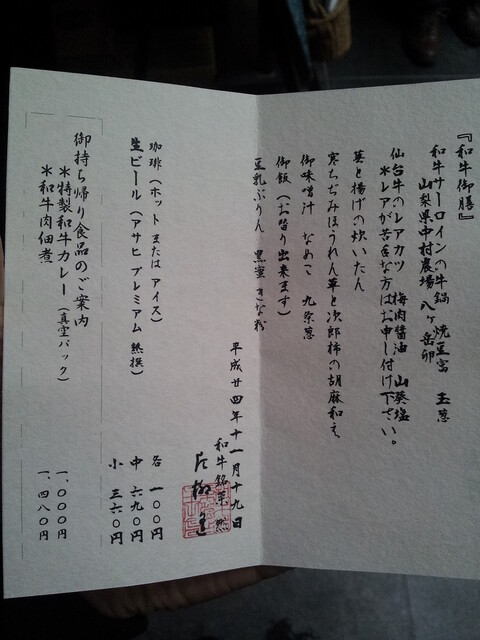 『和牛御膳』
和牛サーロインの牛鍋 焼豆富 玉葱
山梨県中村農場 八ヶ岳卵
仙台牛のレアカツ 梅肉醤油 山葵塩
＊レアが苦手な方はお申し付け下さい。
茎と揚げの炊いたん
寒ちぢみほうれん草と次郎柿の胡麻和え
御味噌汁 なめこ 九条葱
御飯（お替り出来ます）
豆乳ぷりん 黒蜜きな粉
平成廿四年十一月十九日
和牛銘菜 然
珈琲（ホットまたはアイス） 各 一〇〇円
生ビール（アサヒ プレミアム 熟撰） 中 六九〇円
小 三六〇円
御持ち帰り食品のご案内
＊特製和牛カレー（真空パック） 一、〇〇〇円
＊和牛肉佃煮 一、四八〇円